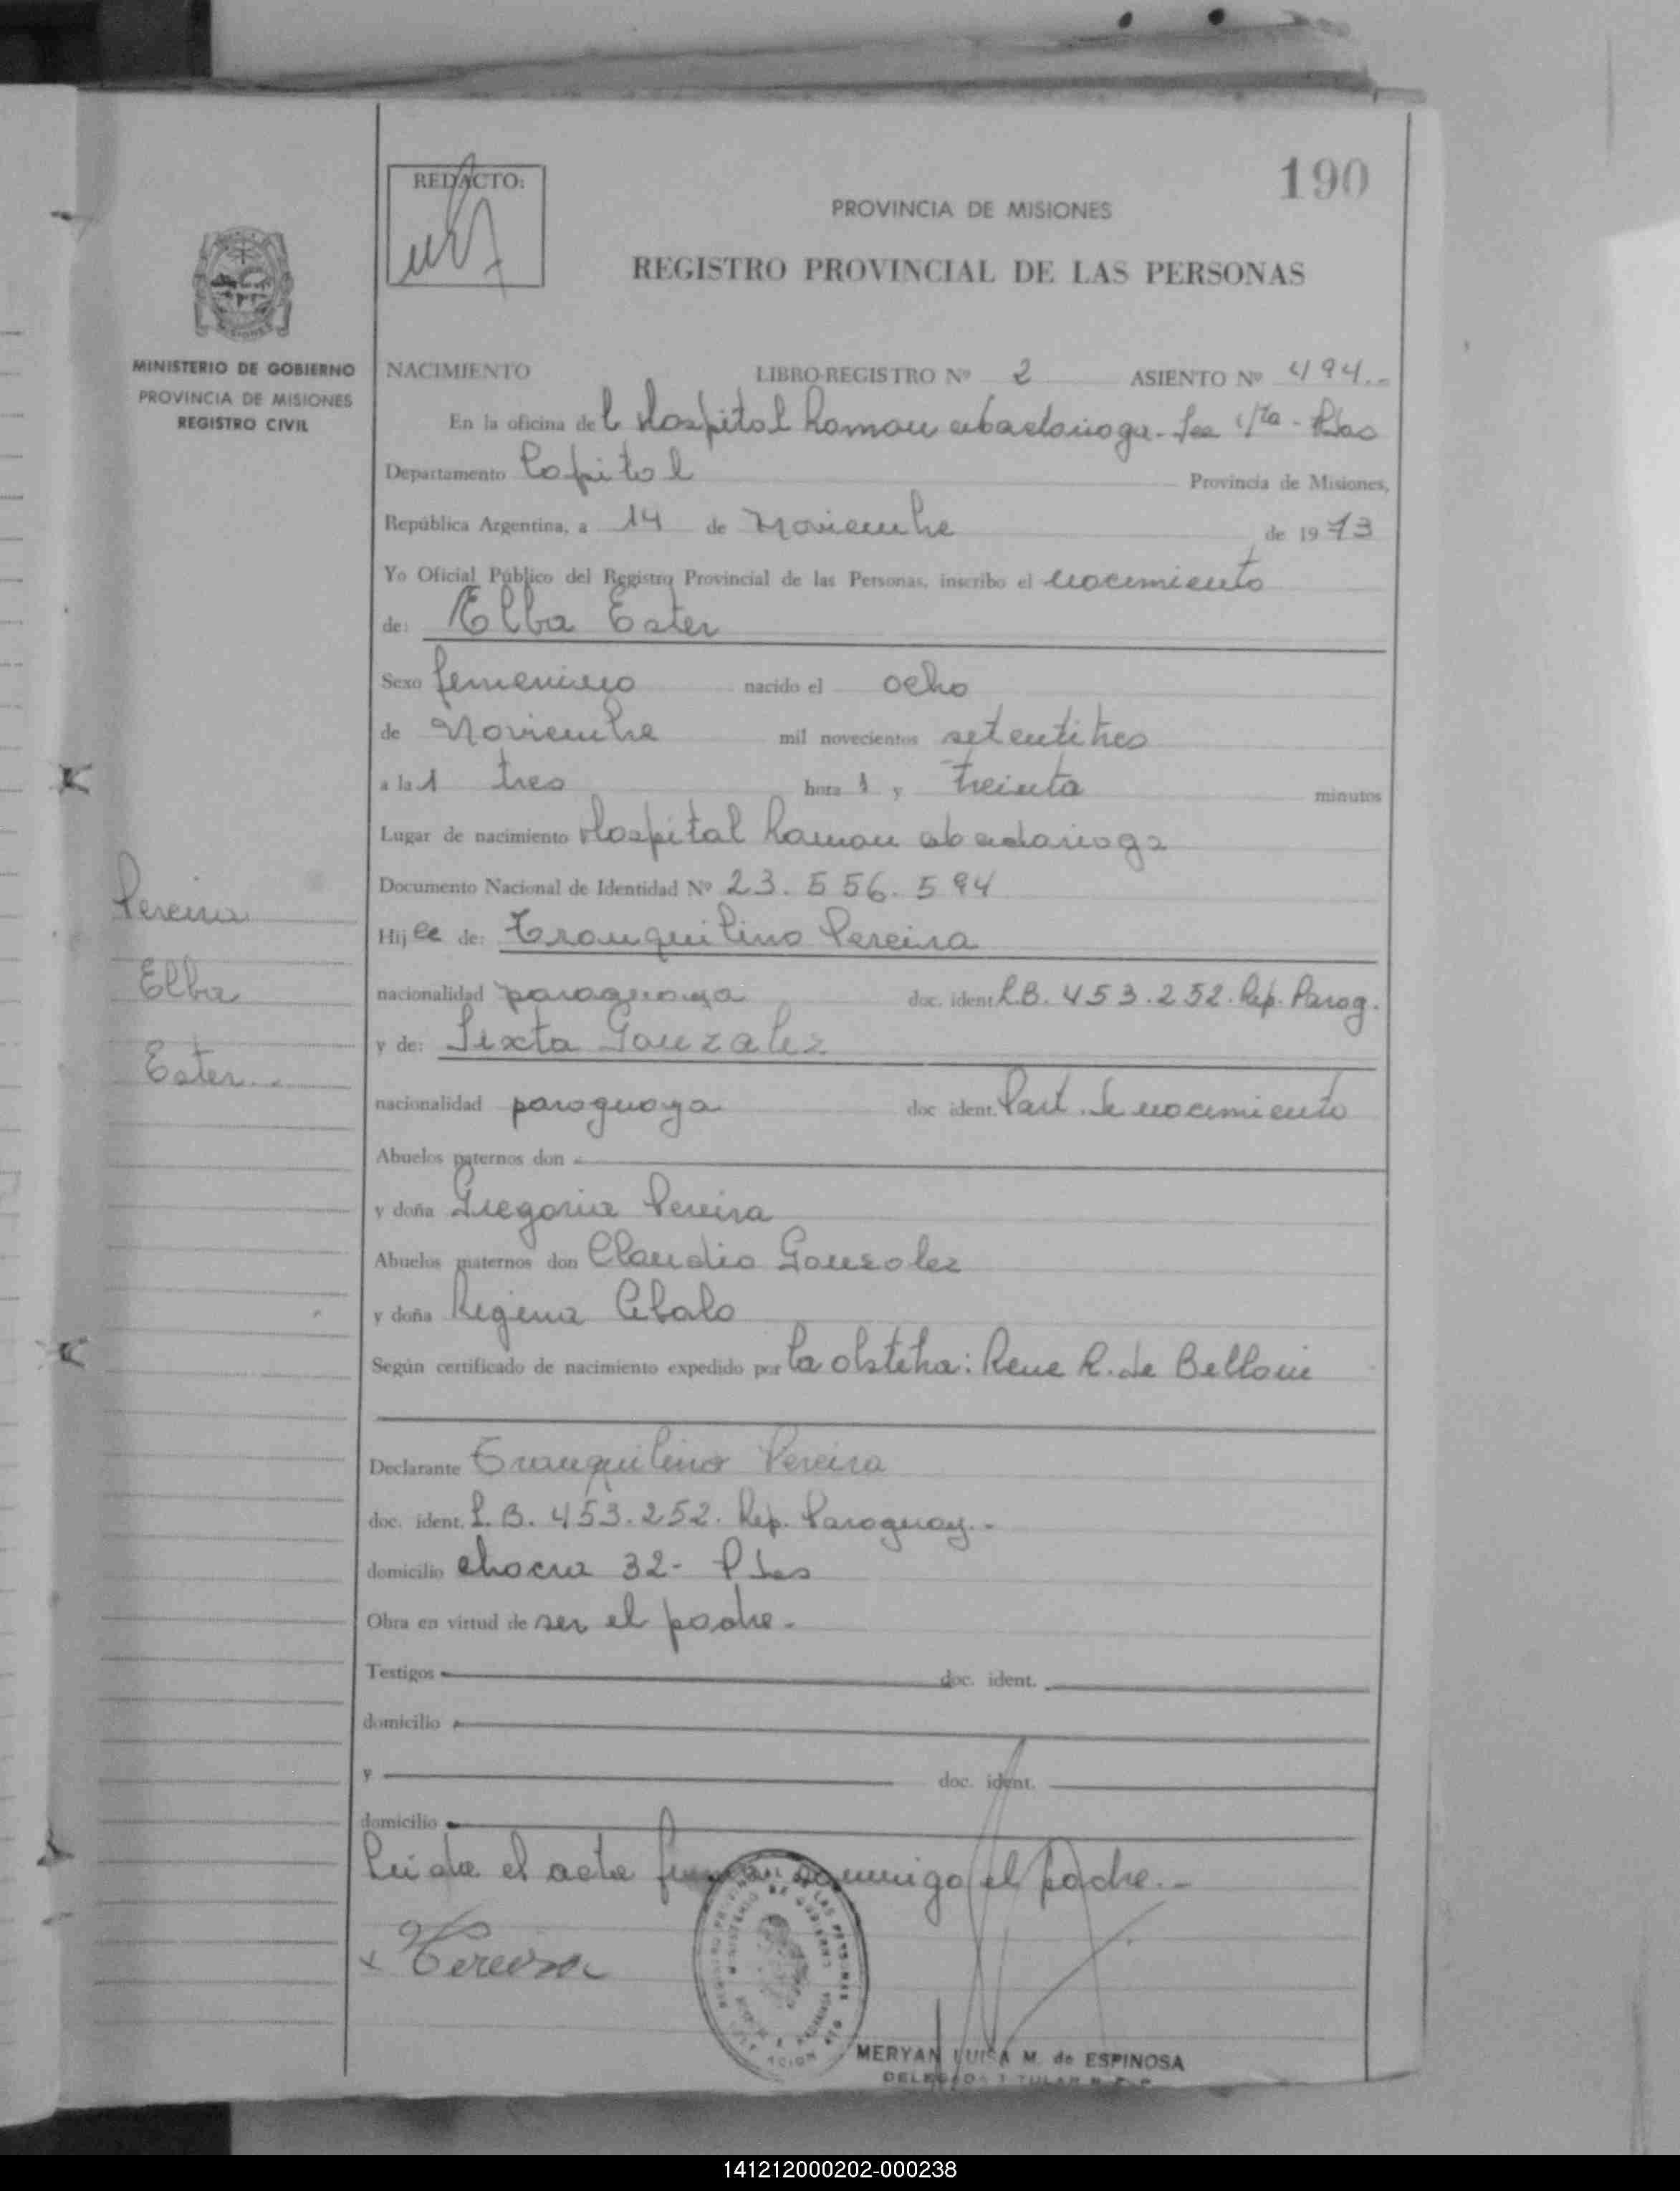 190
REDACTO:
PROVINCIA DE MISIONES
REGISTRO PROVINCIAL DE LAS PERSONAS
MINISTERIO DE GOBIERNO
PROVINCIA DE MISIONES
REGISTRO CIVIL
NACIMIENTO LIBRO-REGISTRO Nº 2 ASIENTO Nº 494.-
En la oficina del Hospital Ramon abadarioga-
Departamento Capital Provincia de Misiones,
República Argentina, a 14 de Noviembre de 1973
Yo Oficial Público del Registro Provincial de las Personas, inscribo el nacimiento
de: Elba Ester
Sexo femenino nacido el ocho
de Noviembre mil novecientos setentitres
a la1 tres hora 1 y treinta minutos
Lugar de nacimiento Hospital Ramon abadarioga
Documento Nacional de Identidad Nº 23.556.594
Hija de: Tranquilino Pereira
nacionalidad paraguaya doc. ident. L.B. 453.252. Rep. Parag.
y de: Sixta Gonzalez
nacionalidad paraguaya doc ident. Part. de nacimiento
Abuelos paternos don
y doña Gregoria Pereira
Abuelos maternos don Claudio Gonzalez
y doña Regina
Según certificado de nacimiento expedido por la obstetra: Rene R. de Belloni
Pereira
Elba
Ester
Declarante Tranquilino Pereira
doc. ident. L.B. 453.252. Rep. Paraguay.-
domicilio chacra 32- Pdas
Obra en virtud de ser el padre.
Testigos doc. ident.
domicilio
y doc. ident.
domicilio
Leida el acta firma conmigo el padre.-
x Pereira
MERYAN LUISA M. de ESPINOSA
DELEGADA TITULAR R. P. P.
141212000202-000238